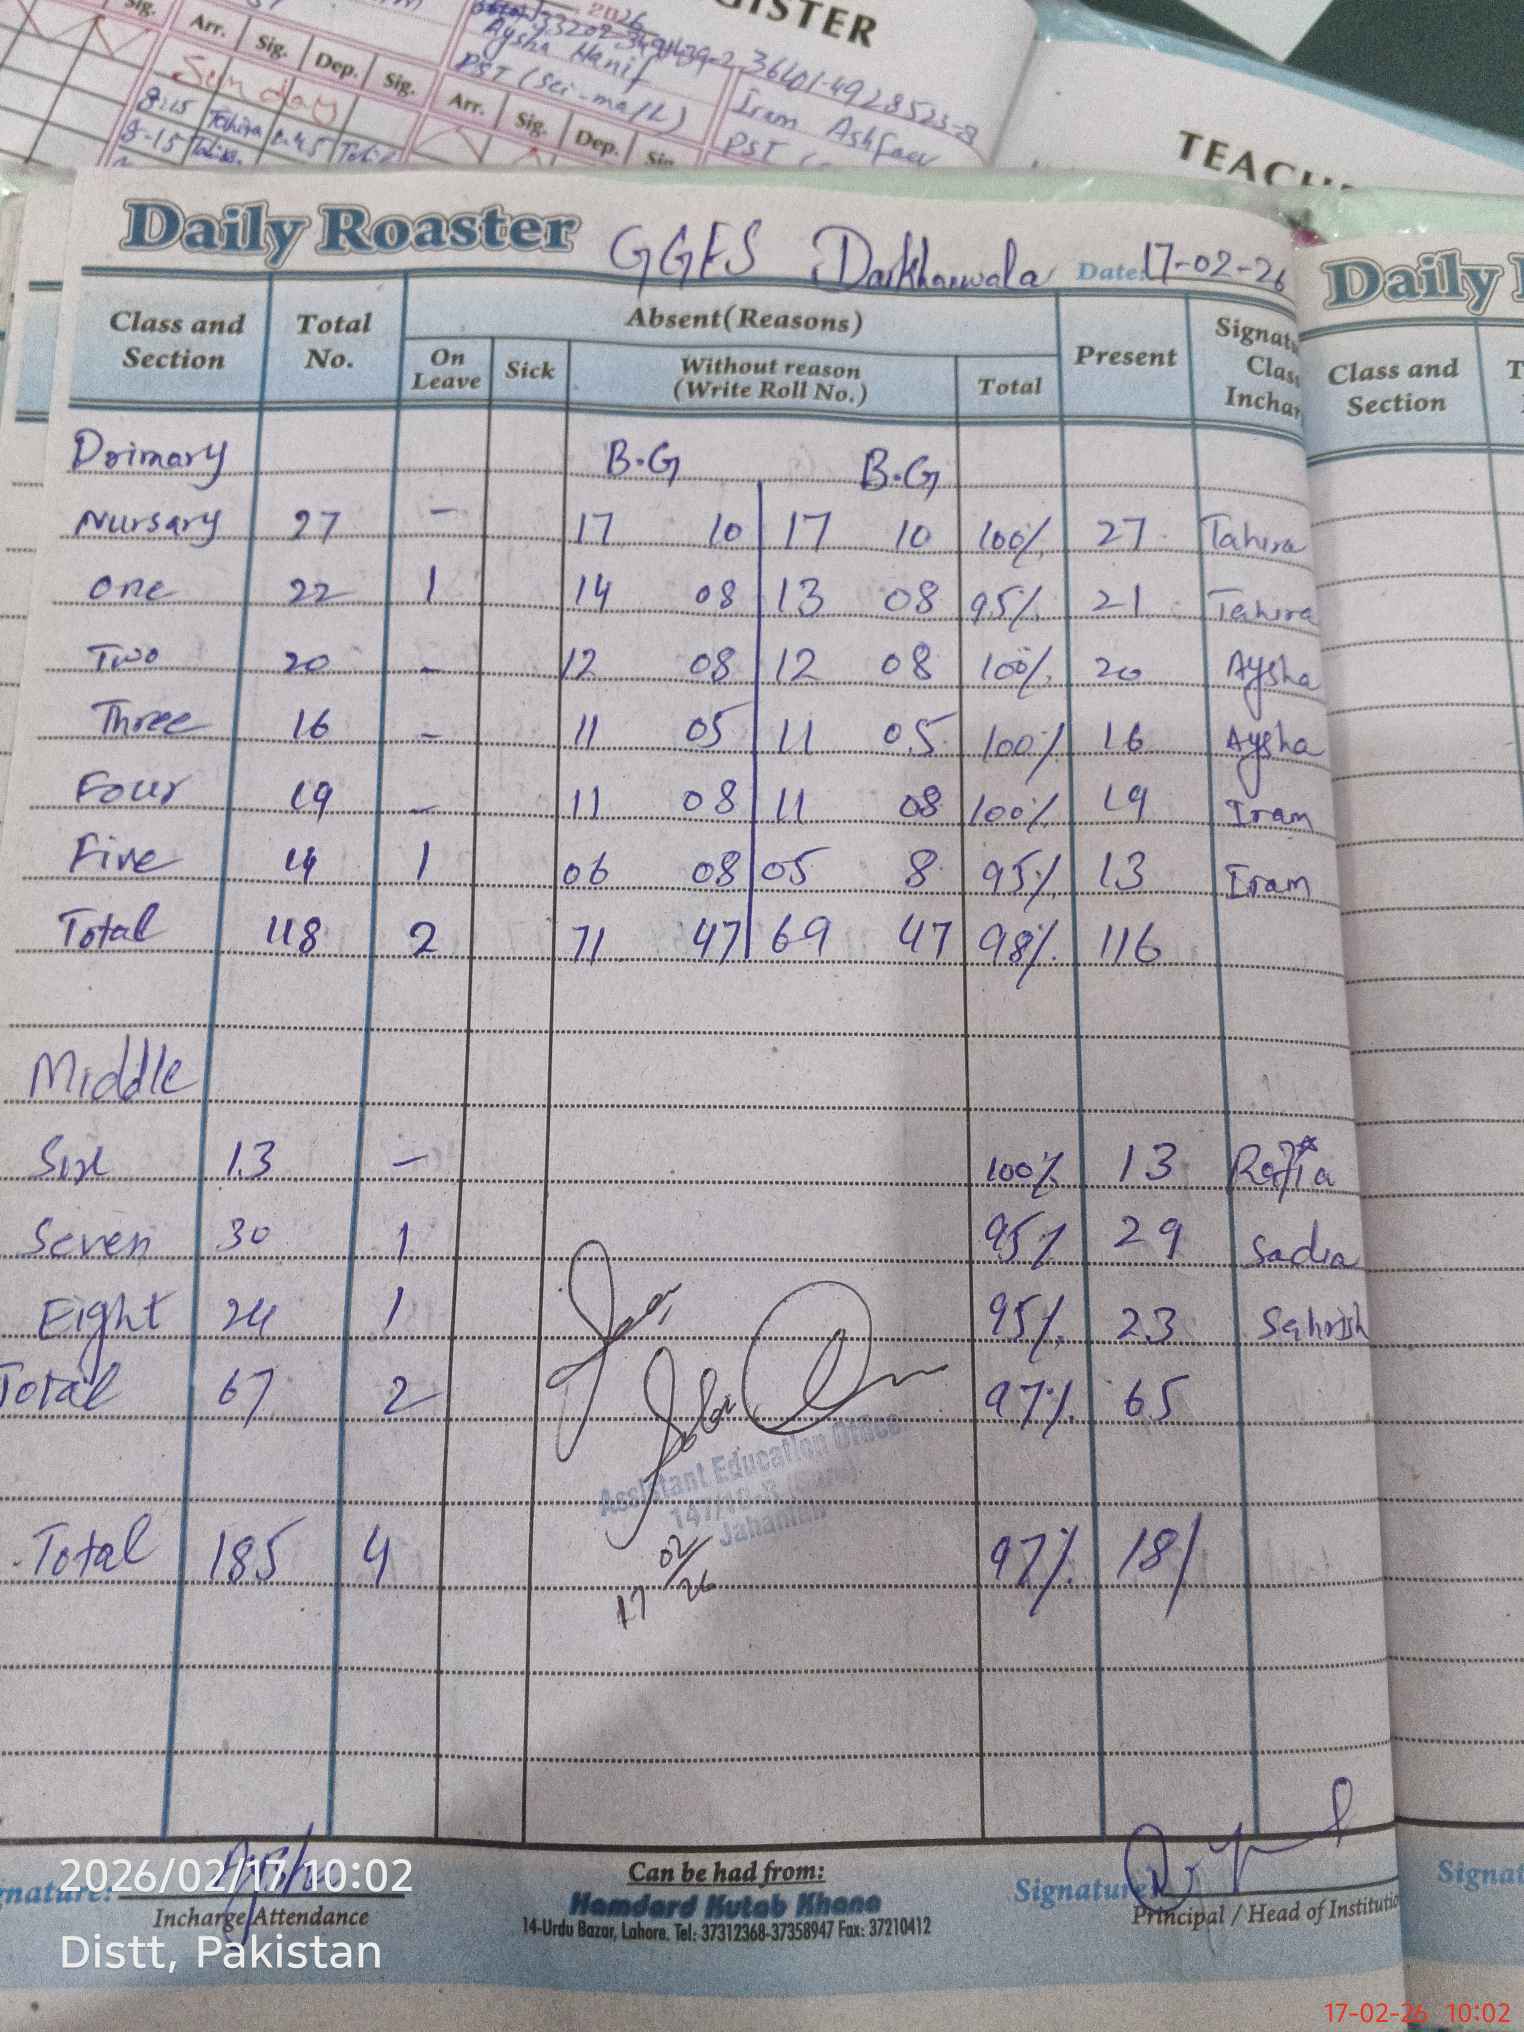 GISTER
TEACH
Sig. Arr. Sig. Dep. Sig.
Sunday
8:15 Tahira
8-15
2026
Aysha Hanif
PST (Sci-math)
Arr. Sig. Dep. Sig.
36401-4928523-8
Iram Ashfaq
PST
Daily Roaster GGES Darkhanwala Date: 17-02-26
Class and Section Total No. Absent(Reasons) Present
On Leave Sick Without reason (Write Roll No.) Total
Primary B.G B.G
Nursary 27 - 17 10 17 10 100% 27 Tahira
one 22 1 14 08 13 08 95% 21 Tahira
Two 20 - 12 08 12 08 100% 20 Aysha
Three 16 - 11 05 11 05 100% 16 Aysha
Four 19 - 11 08 11 08 100% 19 Iram
Five 14 1 06 08 05 8 95% 13 Iram
Total 118 2 71 47 69 47 98% 116
Middle
Six 13 - 100% 13 Rafia
Seven 30 1 95% 29 Sadia
Eight 24 1 95% 23 Sehrish
Total 67 2 97% 65
Assistant Education Officer
Jahanian
Total 185 4 97% 181
17 02/26
Signature: Aysha
Incharge Attendance
Can be had from:
Hamdard Kutab Khana
14-Urdu Bazar, Lahore. Tel: 37312368-37358947 Fax: 37210412
Signature
Principal / Head of Institutio
Daily
Class and Section
Signat
2026/02/17 10:02
Distt, Pakistan
17-02-26 10:02